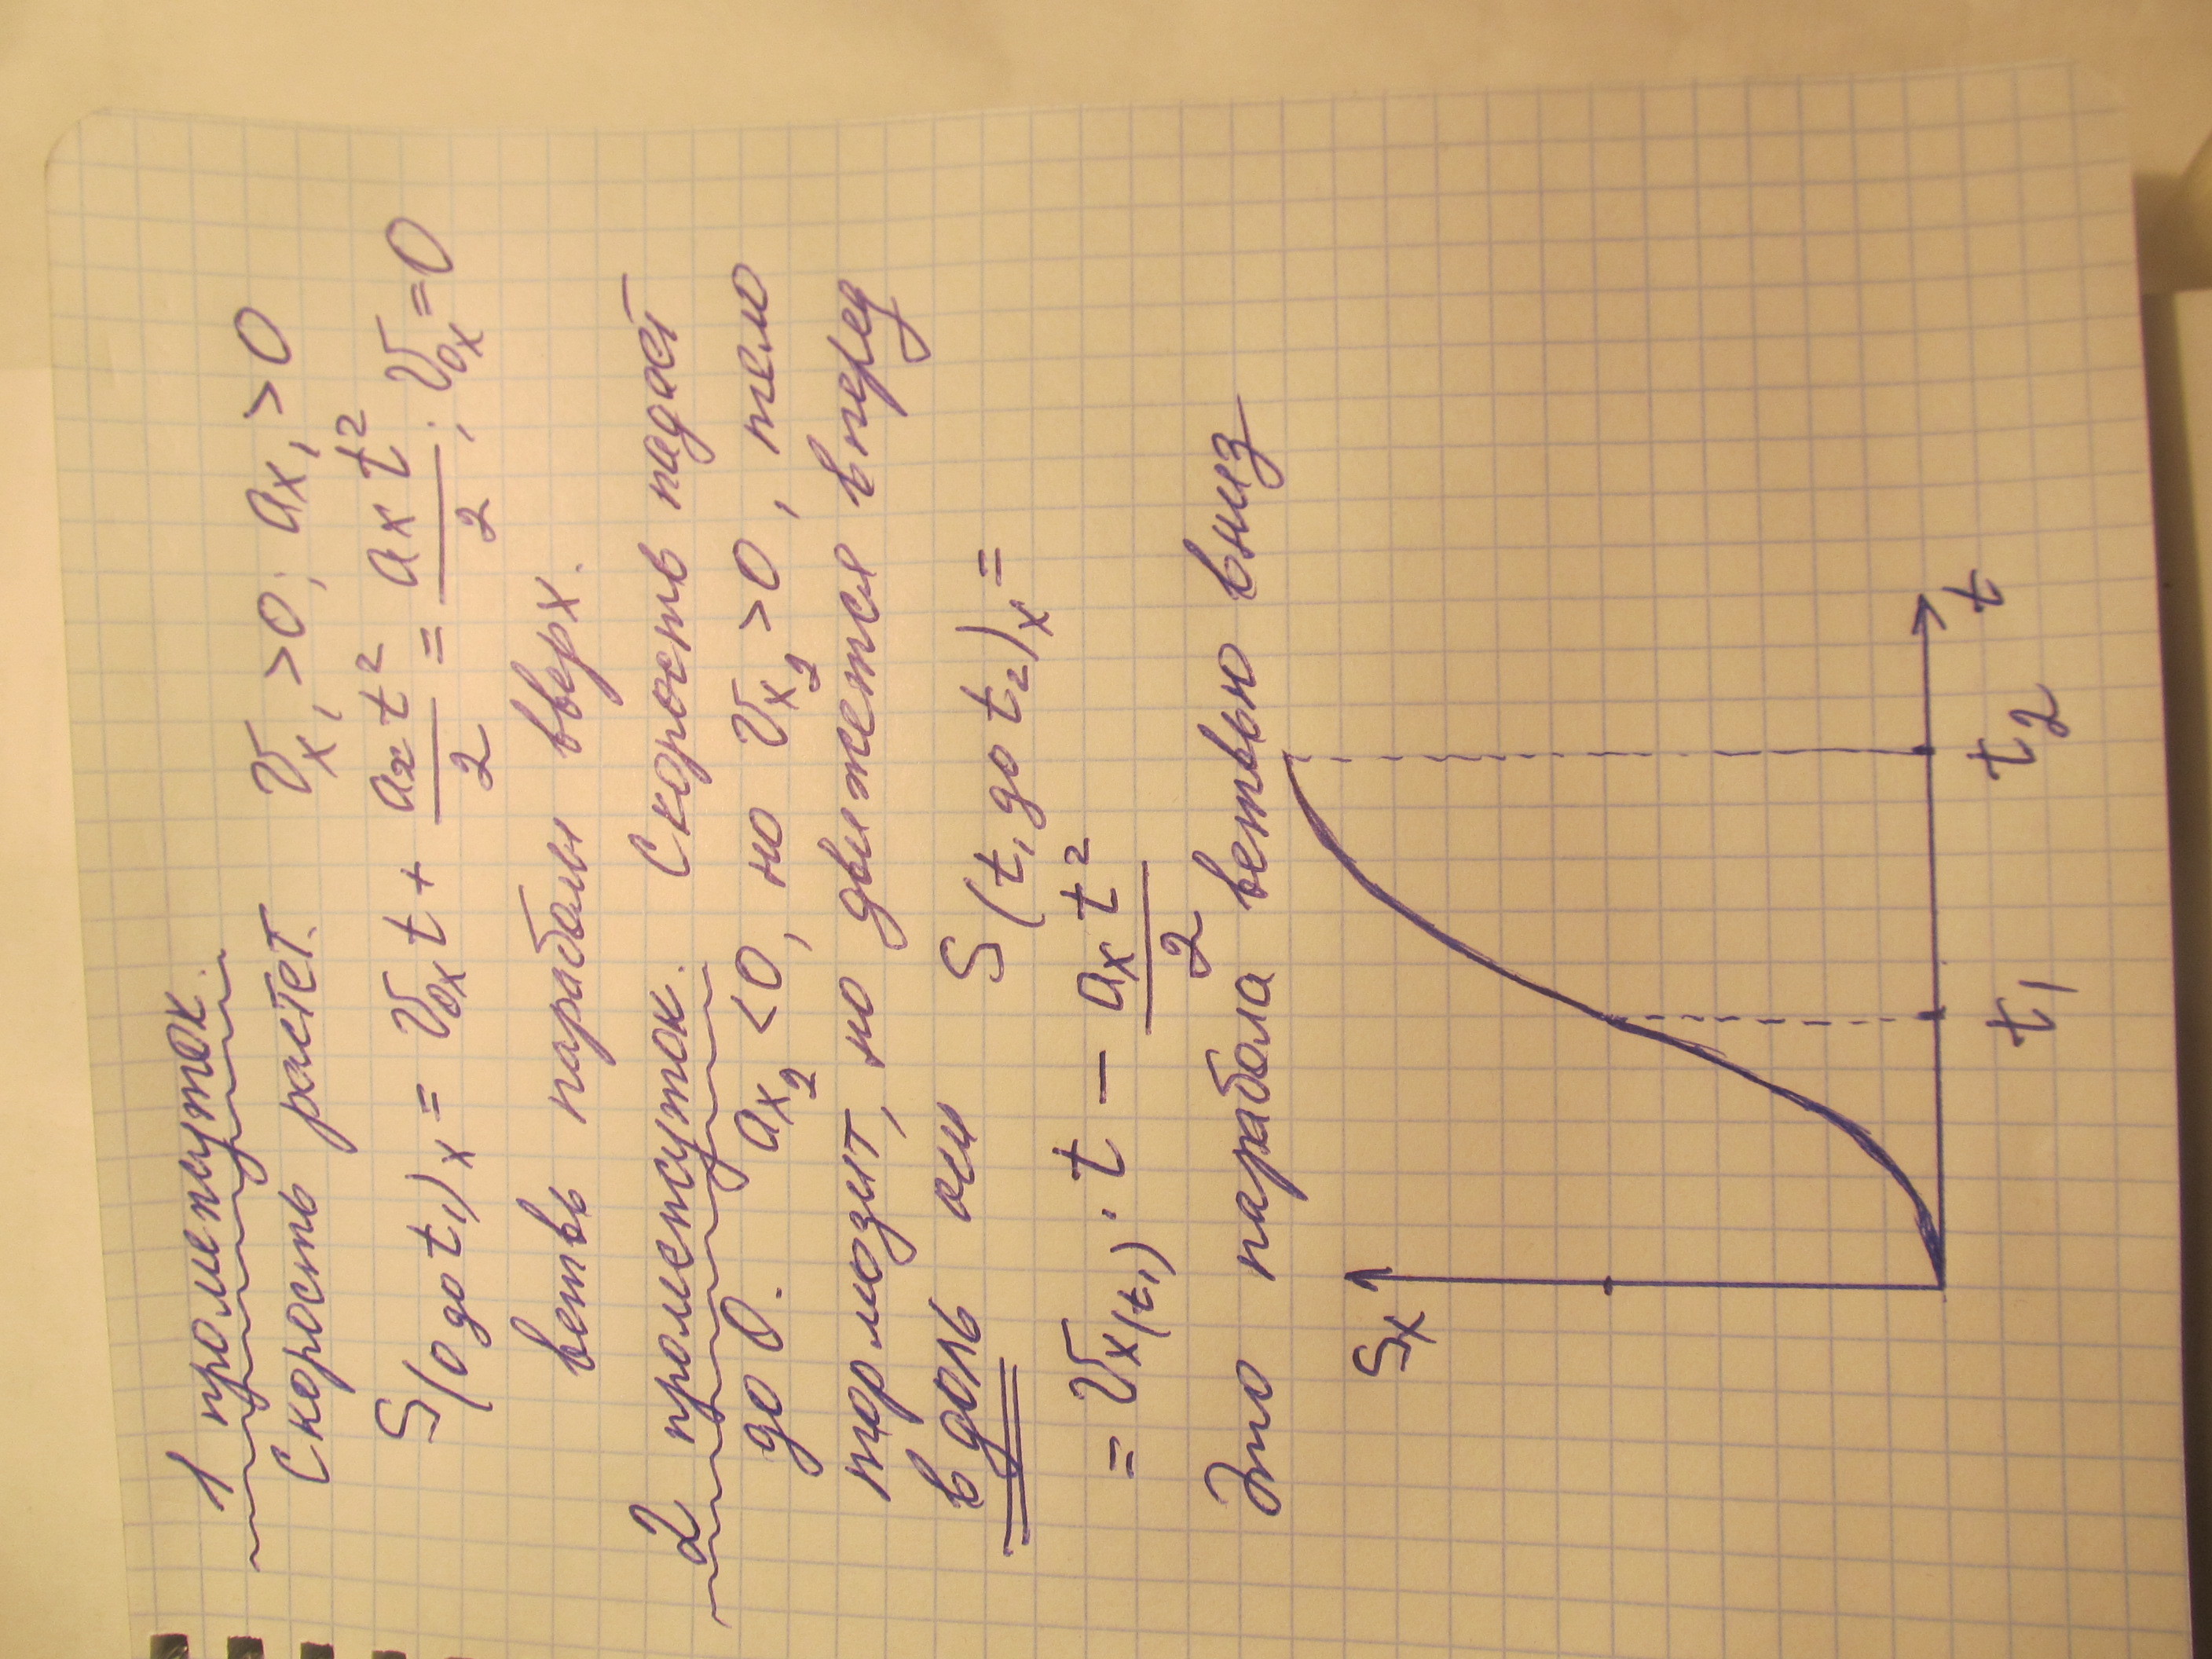 1 промежуток.
Скорость растет. Vx₁ >0; ax₁ >0
S(0 до t₁)x = V₀xt + axt²/2 = axt²/2; V₀x=0
ветвь параболы вверх.
2 промежуток. Скорость падает
до 0. ax₂ <0, но Vx₂ >0, тело
тормозит, но движется вперед
вдоль оси S(t₁ до t₂)x =
= Vx(t₁) · t − axt²/2
Это парабола ветвью вниз
Sx
t
t₁
t₂